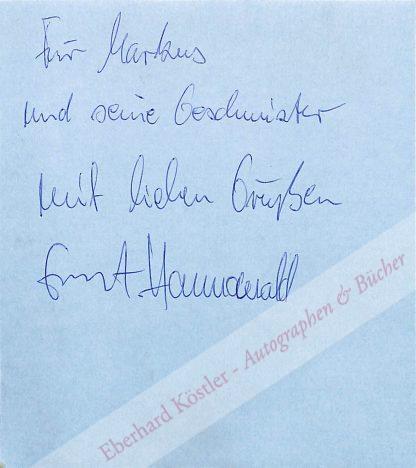 Für Markus
und seine Geschwister
mit lieben Grüßen
Ernst Hannawald
Eberhard Köstler - Autographen & Bücher